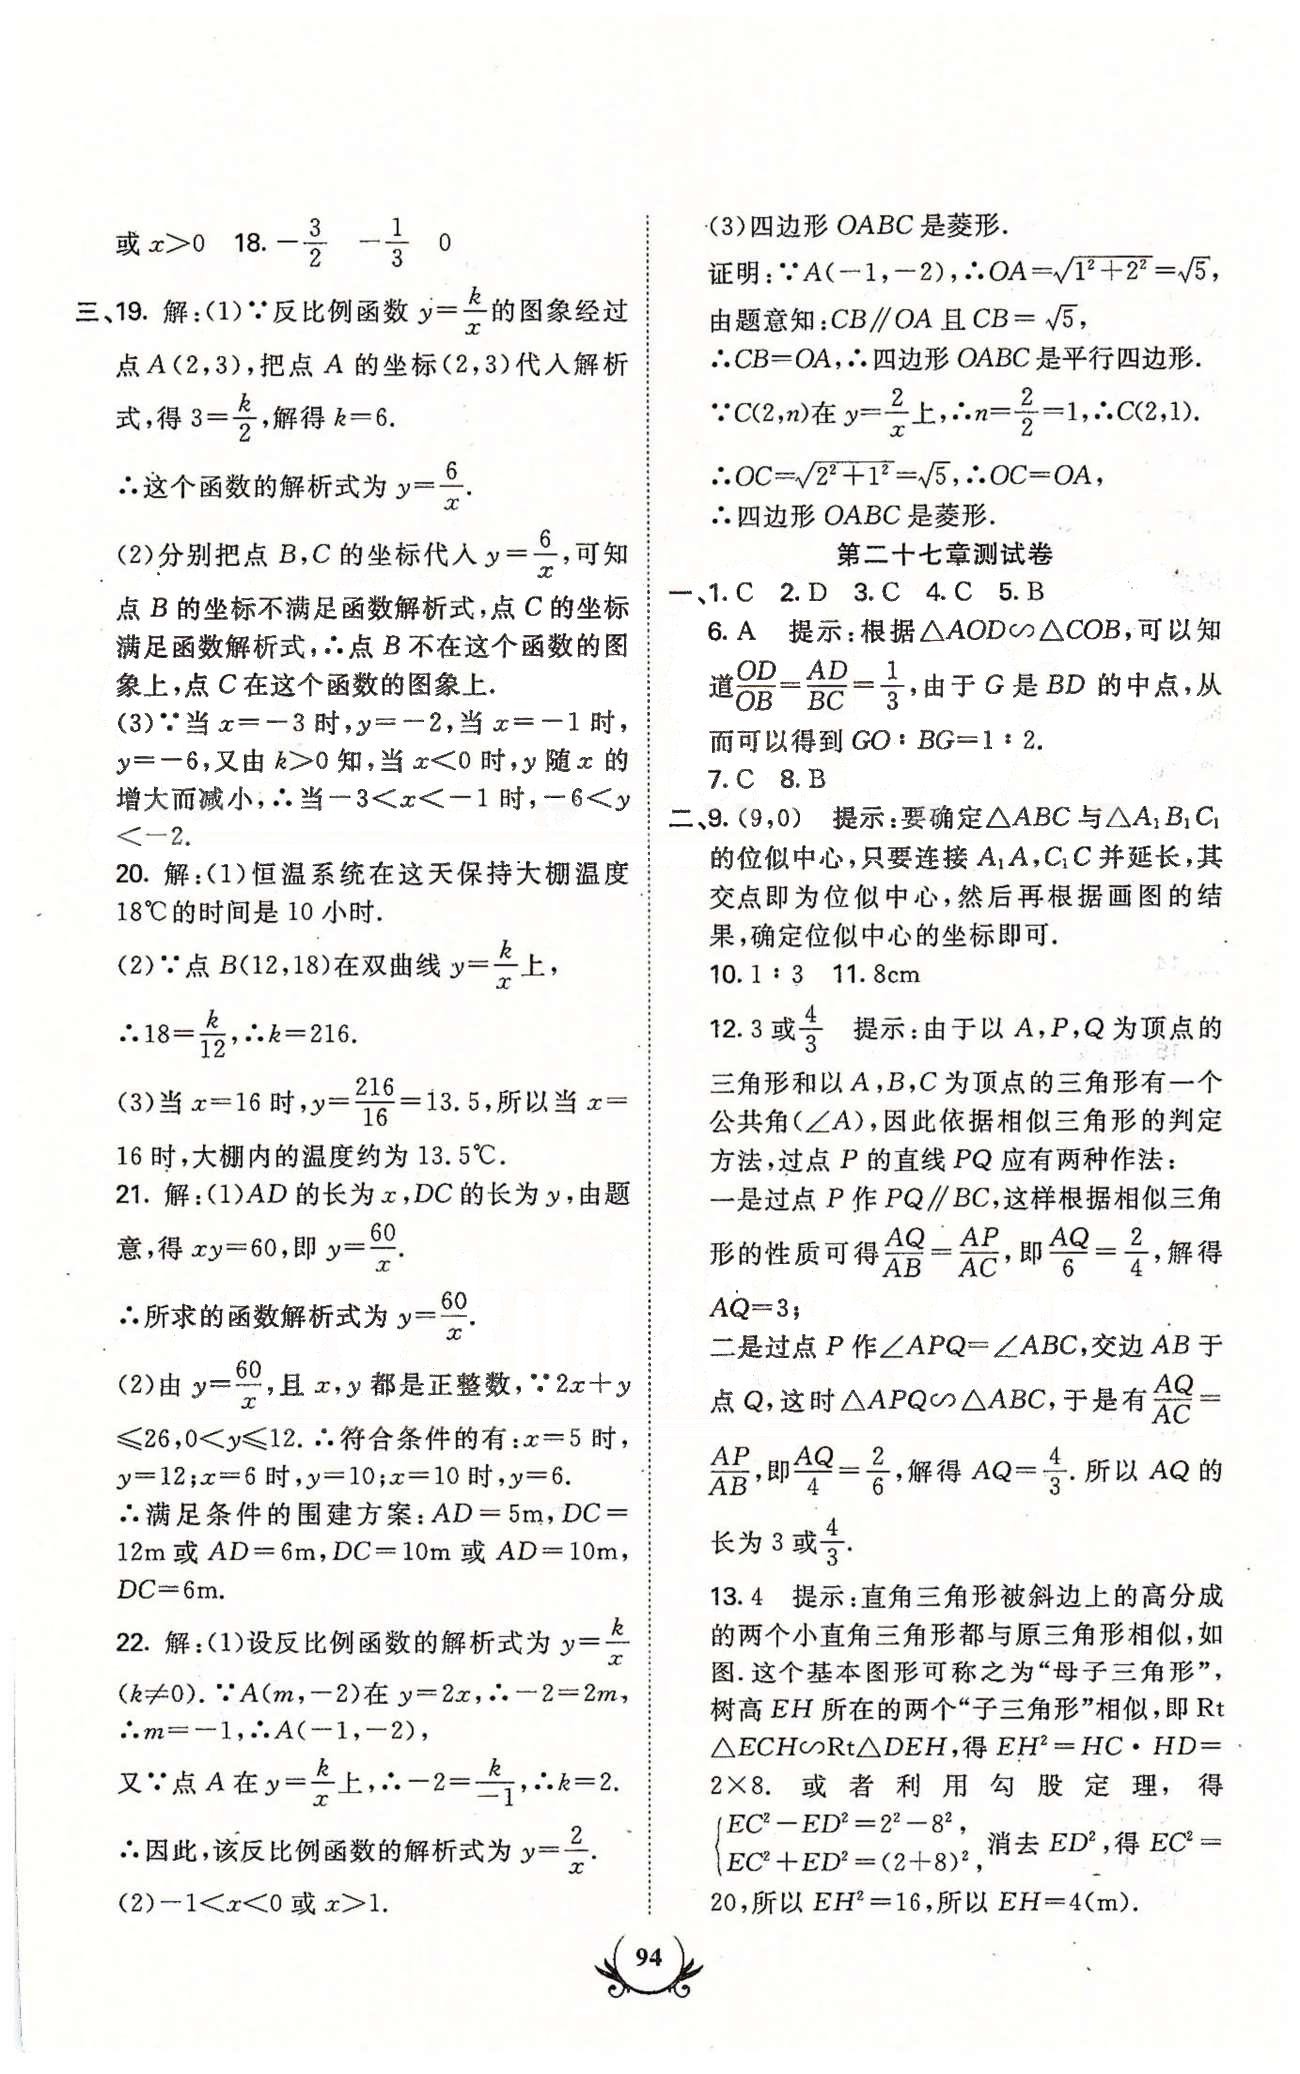 或 x>0 18. -3/2 -1/3 0
三、19. 解:(1)∵反比例函数 y=k/x的图象经过
点 A(2,3),把点 A 的坐标(2,3)代入解析
式,得 3=k/2,解得 k=6.
∴这个函数的解析式为 y=6/x.
(2)分别把点 B,C 的坐标代入 y=6/x,可知
点 B 的坐标不满足函数解析式,点 C 的坐标
满足函数解析式,∴点 B 不在这个函数的图
象上,点 C 在这个函数的图象上.
(3)∵当 x=-3 时,y=-2,当 x=-1 时,
y=-6,又由 k>0 知,当 x<0 时,y 随 x 的
增大而减小,∴当-3<x<-1 时,-6<y
<-2.
20. 解:(1)恒温系统在这天保持大棚温度
18℃的时间是 10 小时.
(2)∵点 B(12,18)在双曲线 y=k/x上,
∴18=k/12,∴k=216.
(3)当 x=16 时,y=216/16=13.5,所以当 x=
16 时,大棚内的温度约为 13.5℃.
21. 解:(1)AD 的长为 x,DC 的长为 y,由题
意,得 xy=60,即 y=60/x.
∴所求的函数解析式为 y=60/x.
(2)由 y=60/x,且 x,y 都是正整数,∵2x+y
≤26,0<y≤12.∴符合条件的有:x=5 时,
y=12;x=6 时,y=10;x=10 时,y=6.
∴满足条件的围建方案:AD=5m,DC=
12m 或 AD=6m,DC=10m 或 AD=10m,
DC=6m.
22. 解:(1)设反比例函数的解析式为 y=k/x
(k≠0).∵A(m,-2)在 y=2x,∴-2=2m,
∴m=-1,∴A(-1,-2),
又∵点 A 在 y=k/x上,∴-2=k/-1,∴k=2.
∴因此,该反比例函数的解析式为 y=2/x.
(2)-1<x<0 或 x>1.
(3)四边形 OABC 是菱形.
证明:∵A(-1,-2),∴OA=√(1²+2²)=√5,
由题意知:CB∥OA 且 CB=√5,
∴CB=OA,∴四边形 OABC 是平行四边形.
∵C(2,n)在 y=2/x上,∴n=2/2=1,∴C(2,1).
∴OC=√(2²+1²)=√5,∴OC=OA,
∴四边形 OABC 是菱形.
第二十七章测试卷
一、1. C 2. D 3. C 4. C 5. B
6. A 提示:根据△AOD∽△COB,可以知
道OD/OB=AD/BC=1/3,由于 G 是 BD 的中点,从
而可以得到 GO∶BG=1∶2.
7. C 8. B
二、9. (9,0) 提示:要确定△ABC 与△A₁B₁C₁
的位似中心,只要连接 A₁A,C₁C 并延长,其
交点即为位似中心,然后再根据画图的结
果,确定位似中心的坐标即可.
10. 1∶3 11. 8cm
12. 3 或4/3 提示:由于以 A,P,Q 为顶点的
三角形和以 A,B,C 为顶点的三角形有一个
公共角(∠A),因此依据相似三角形的判定
方法,过点 P 的直线 PQ 应有两种作法:
一是过点 P 作 PQ∥BC,这样根据相似三角
形的性质可得AQ/AB=AP/AC,即AQ/6=2/4,解得
AQ=3;
二是过点 P 作∠APQ=∠ABC,交边 AB 于
点 Q,这时△APQ∽△ABC,于是有AQ/AC=
AP/AB,即AQ/4=2/6,解得 AQ=4/3.所以 AQ 的
长为 3 或4/3.
13. 4 提示:直角三角形被斜边上的高分成
的两个小直角三角形都与原三角形相似,如
图.这个基本图形可称之为“母子三角形”,
树高 EH 所在的两个“子三角形”相似,即 Rt
△ECH∽Rt△DEH,得 EH²=HC·HD=
2×8. 或者利用勾股定理,得
{EC²-ED²=2²-8²,
EC²+ED²=(2+8)², 消去 ED²,得 EC²=
20,所以 EH²=16,所以 EH=4(m).
94